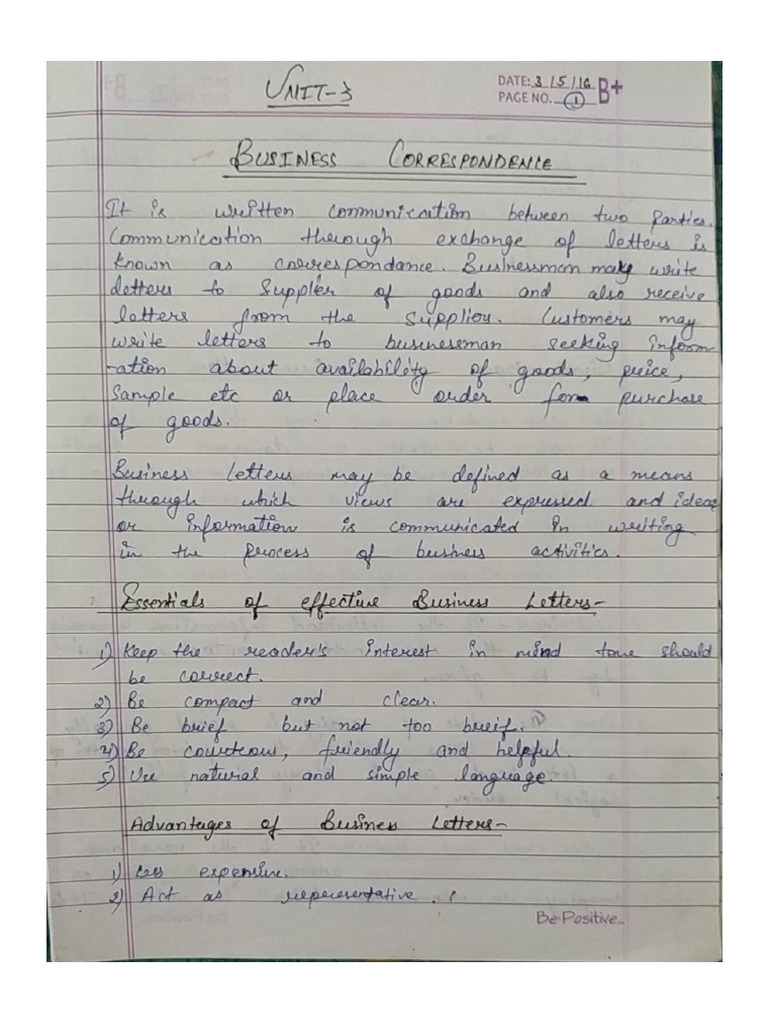 UNIT-3
DATE: 3/5/16 B+
PAGE NO. 1
BUSINESS CORRESPONDENCE
It is written communication between two parties.
Communication through exchange of letters is
known as correspondance. Businessman may write
letters to Supplier of goods and also receive
letters from the supplier. Customers may
write letters to businessman seeking inform
-ation about availability of goods, price,
Sample etc or place order for purchase
of goods.
Business Letters may be defined as a means
through which views are expressed and ideas
or information is communicated in writing
in the process of business activities.
Essentials of effective Business Letters-
1) Keep the reader's interest in mind tone should
be correct.
2) Be compact and clear.
3) Be brief but not too breif.
4) Be courteous, friendly and helpful.
5) Use natural and simple language.
Advantages of Business Letters-
1) Less expensive.
2) Act as representative.
Be Positive..